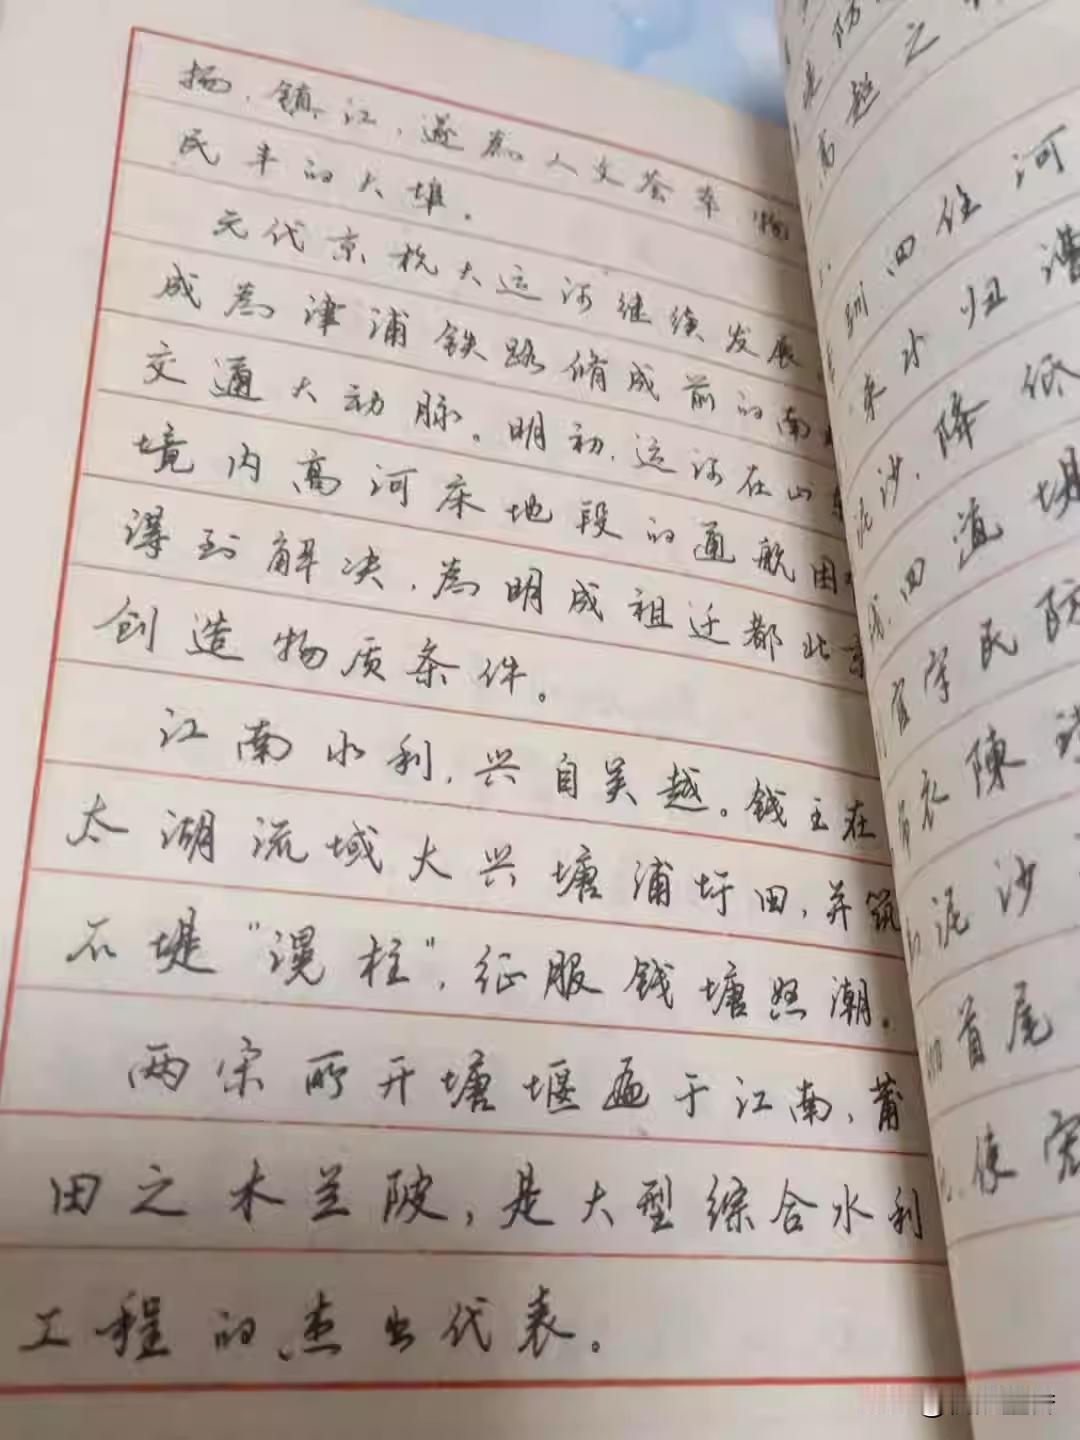 扬、镇江,遂为人文荟萃、物
民丰的大埠。
元代京杭大运河继续发展
成为津浦铁路修成前的南
交通大动脉。明初,运河在山东
境内高河床地段的通航困
得到解决,为明成祖迁都北京
创造物质条件。
江南水利,兴自吴越。钱王在
太湖流域大兴塘浦圩田,并筑
石堤“滉柱”,征服钱塘怒潮。
两宋所开塘堰遍于江南,莆
田之木兰陂,是大型综合水利
工程的杰出代表。
防
趋之
四住河
来水归漕
泥沙,降低
四道堤
官字民防
陳
泥沙
首尾